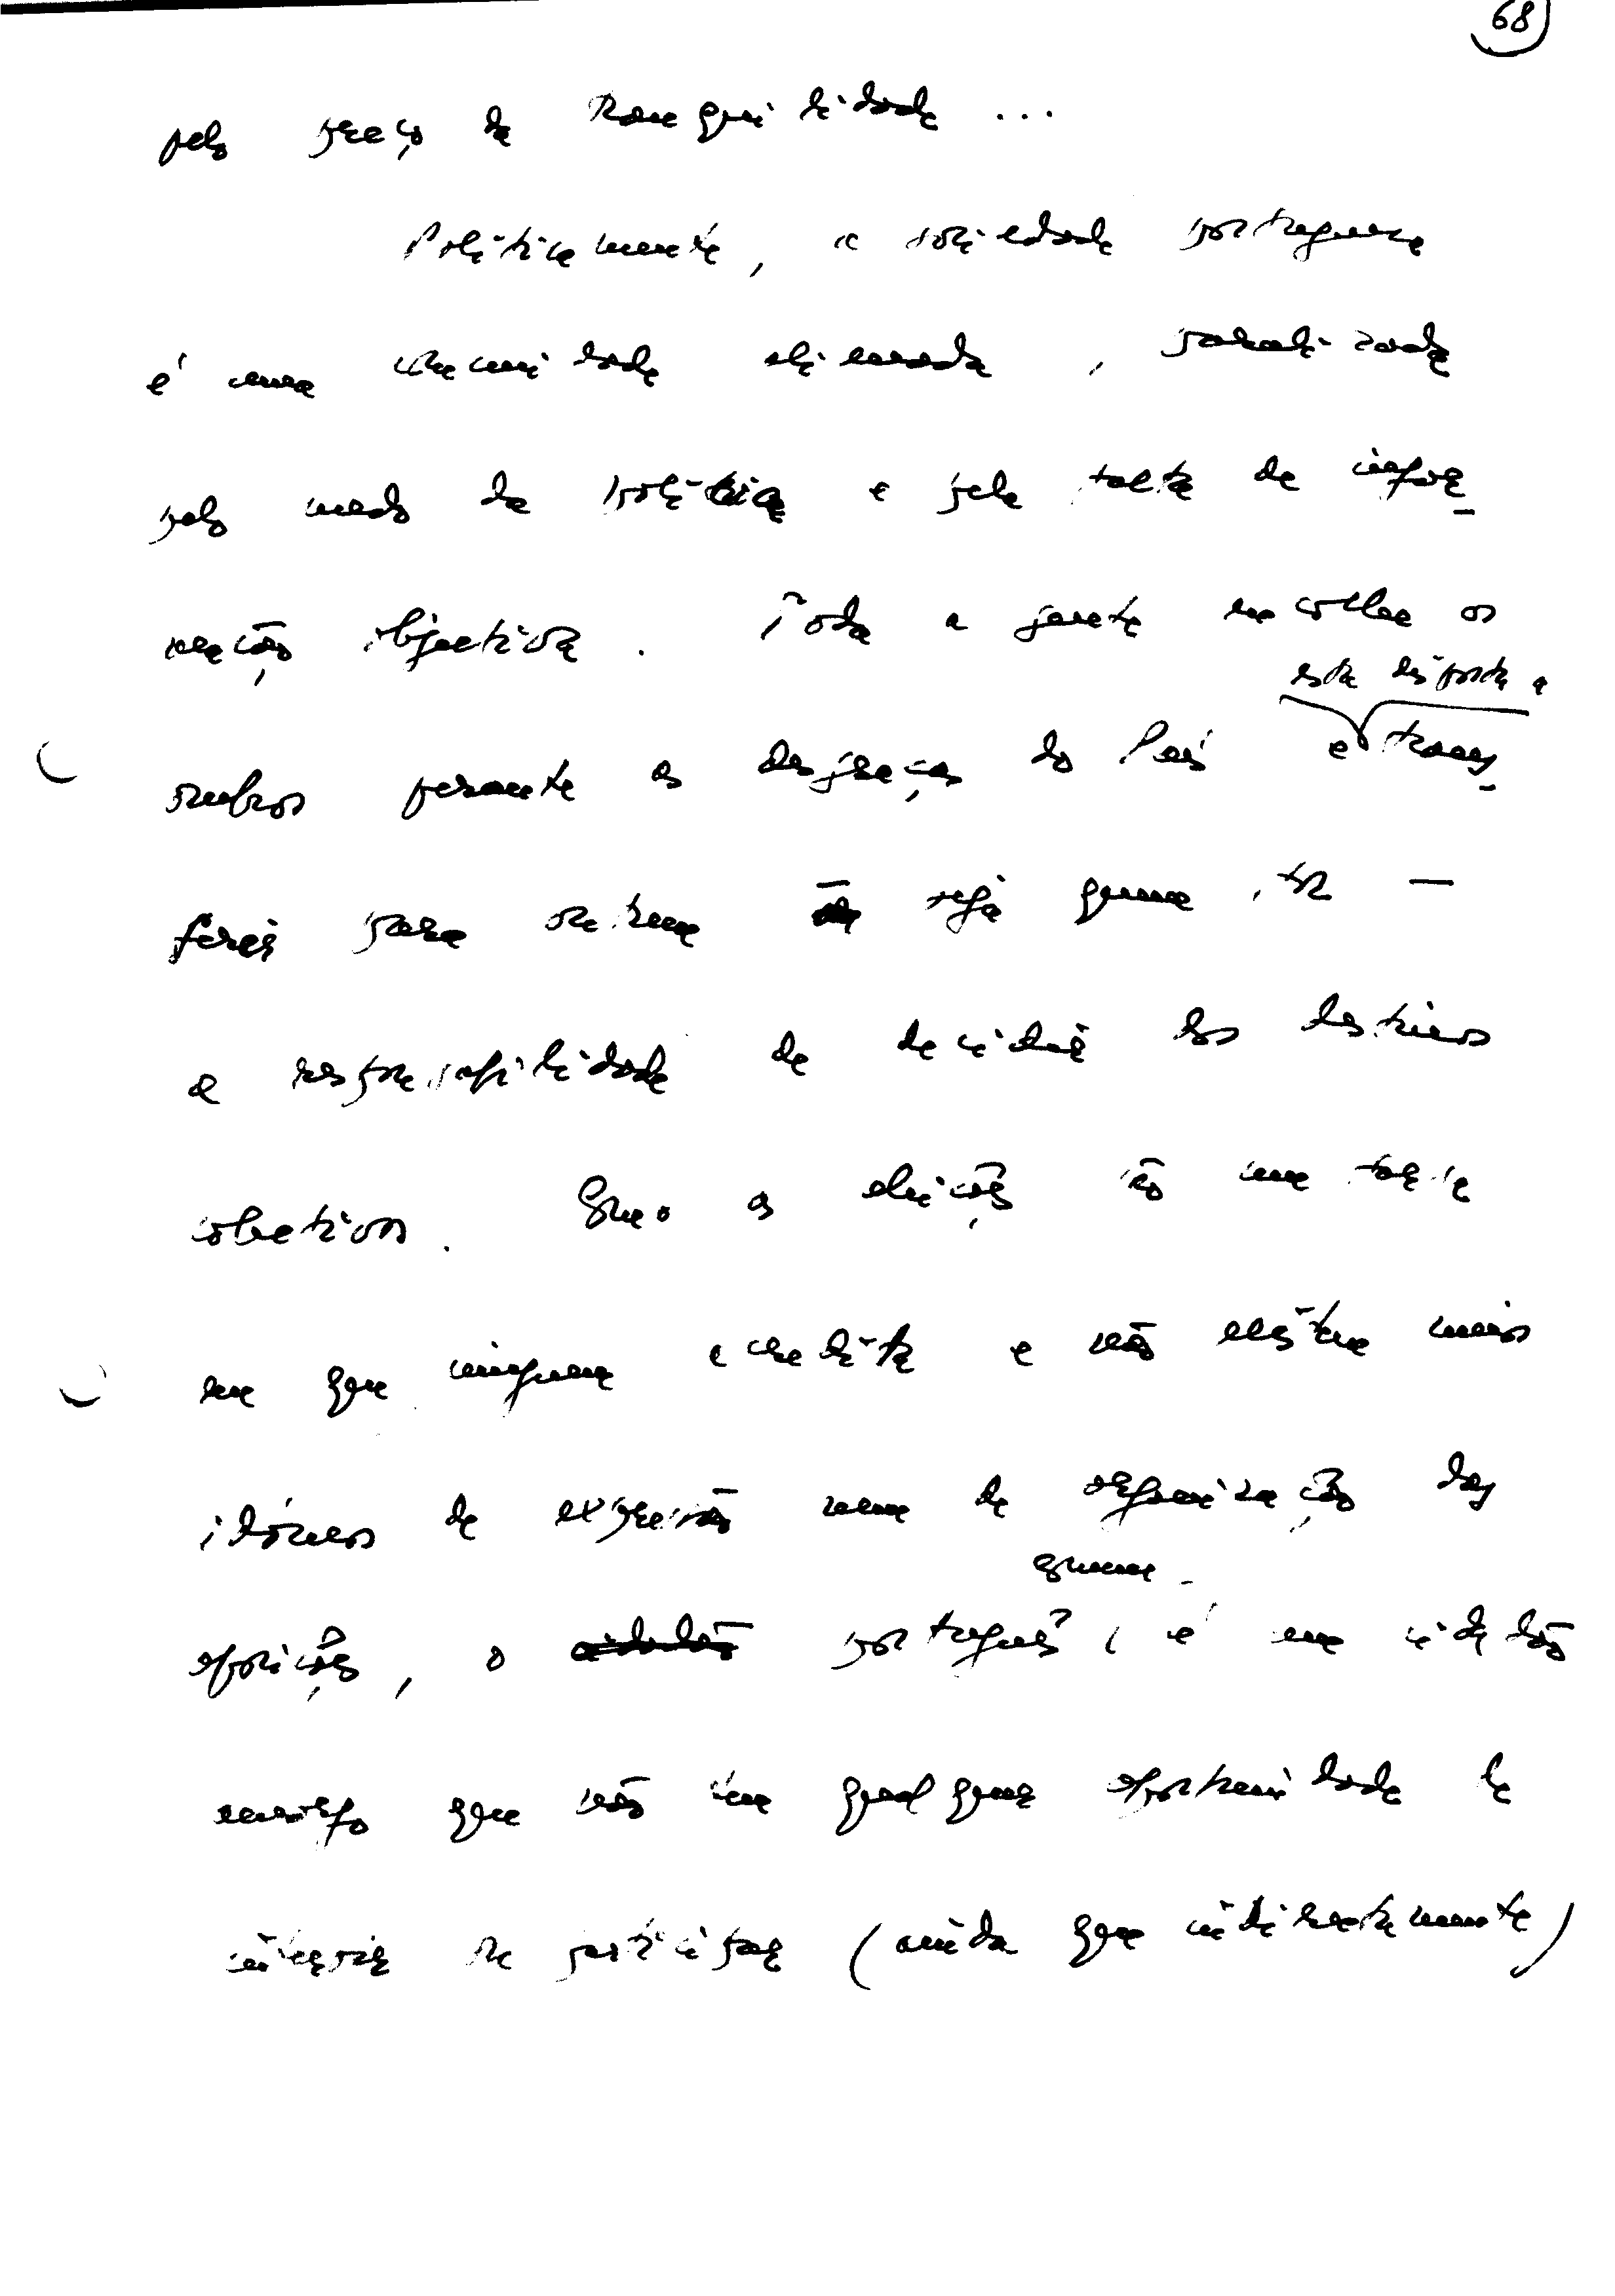 68
pelo preço da tranquilidade ...
Politicamente, a sociedade portuguesa
é uma comunidade alienada, paralizada
pelo medo da política e pela falta de infor-
mação objectiva. Toda a gente encolhe os
está disposta a
ombros perante as desgraças do País e trans-
ferir para outrem seja quem for —
a responsabilidade de decidir dos destinos
colectivos. Como as eleições são uma farsa
em que ninguém acredita e não existem meios
idóneos de expressão nem de organização das
comum
oposições, o cidadão português, é um cidadão
amorfo que não tem qualquer oportunidade de
intervir ou participar (ainda que indirectamente)